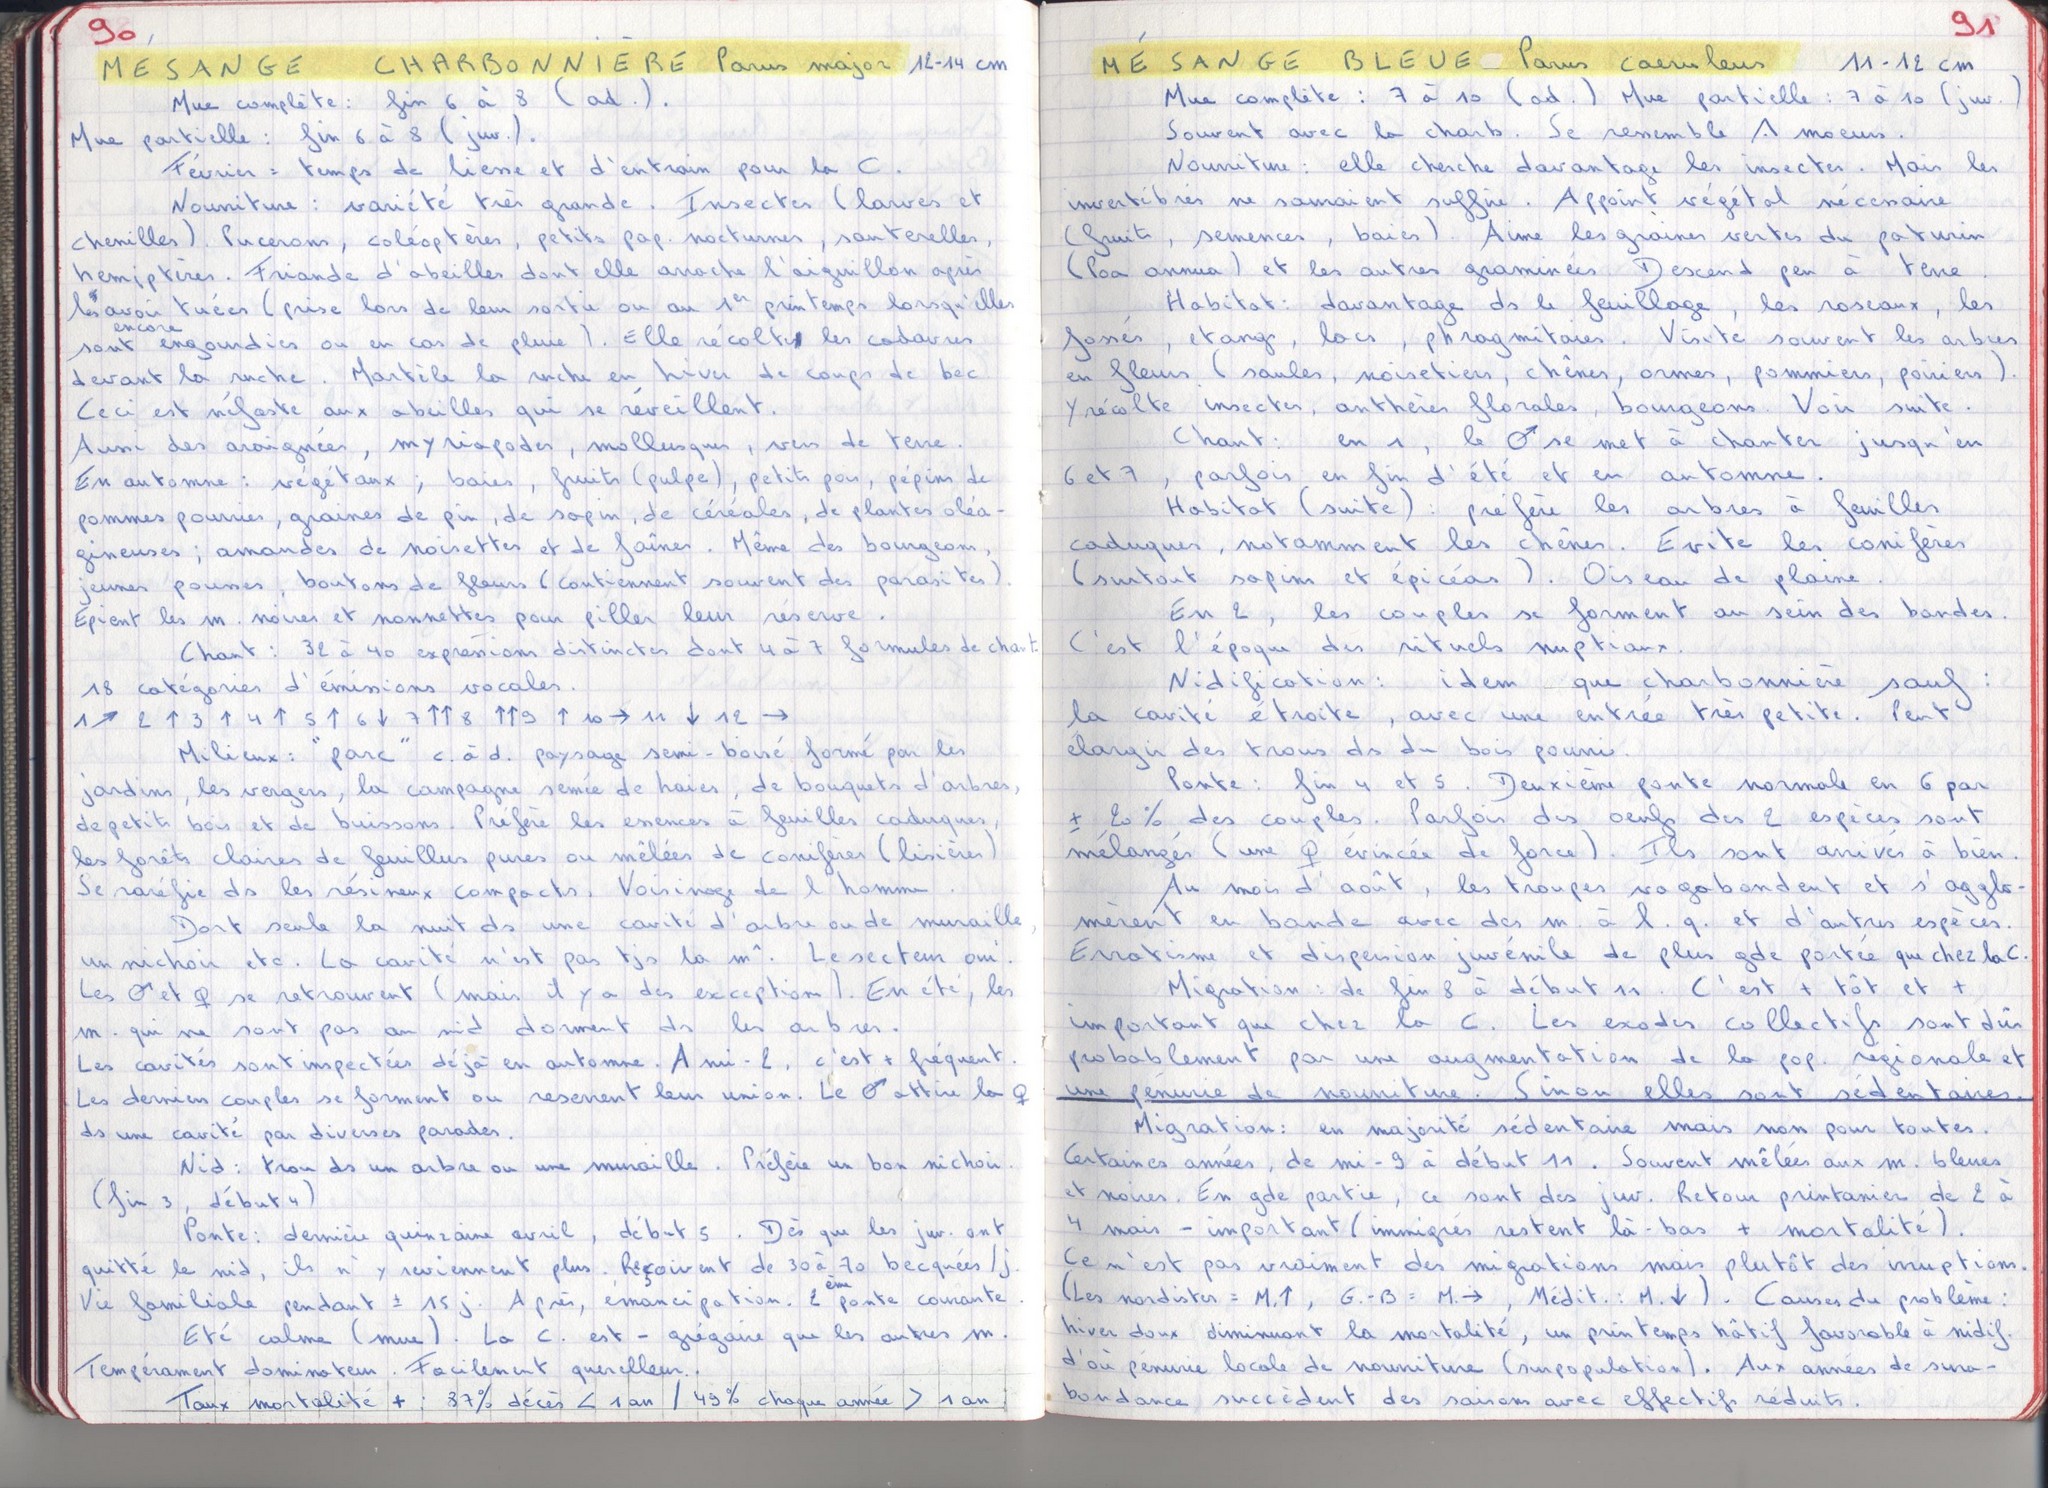 90
MESANGE CHARBONNIÈRE Parus major 12-14 cm
Mue complète : fin 6 à 8 (ad.).
Mue partielle : fin 6 à 8 (juv.).
Février = temps de liesse et d'entrain pour la C.
Nourriture : variété très grande. Insectes (larves et
chenilles). Pucerons, coléoptères, petits pap. nocturnes, sauterelles,
hemiptères. Friande d'abeilles dont elle arrache l'aiguillon après
les avoir tuées (prise lors de leur sortie ou au 1er printemps lorsqu'elles
sont encore engourdies ou en cas de pluie). Elle récolte les cadavres
devant la ruche. Martèle la ruche en hiver de coups de bec
Ceci est néfaste aux abeilles qui se réveillent.
Aussi des araignées, myriapodes, mollusques, vers de terre.
En automne : végétaux ; baies, fruits (pulpe), petits pois, pépins de
pommes pourries, graines de pin, de sapin, de céréales, de plantes oléa-
gineuses ; amandes de noisettes et de faînes. Même des bourgeons,
jeunes pousses, boutons de fleurs (contiennent souvent des parasites).
Epient les m. noires et nonnettes pour piller leur réserve.
Chant : 32 à 40 expressions distinctes dont 4 à 7 formules de chant.
18 catégories d'émissions vocales.
1 ↗ 2 ↑ 3 ↑ 4 ↑ 5 ↑ 6 ↓ 7 ↑↑ 8 ↑↑ 9 ↑ 10 → 11 ↓ 12 →
Milieux : "parc" c. à d. paysage semi-boisé formé par les
jardins, les vergers, la campagne semée de haies, de bouquets d'arbres,
de petits bois et de buissons. Préfère les essences à feuilles caduques,
les forêts claires de feuillus pures ou mêlées de conifères (lisières)
Se raréfie ds les résineux compacts. Voisinage de l'homme.
Dort seule la nuit ds une cavité d'arbre ou de muraille,
un nichoir etc. La cavité n'est pas tjs la m̂. Le secteur oui.
Les ♂ et ♀ se retrouvent (mais il y a des exceptions). En été, les
m. qui ne sont pas au nid dorment ds les arbres.
Les cavités sont inspectées déjà en automne. A mi-2, c'est + fréquent.
Les derniers couples se forment ou resserrent leur union. Le ♂ attire la ♀
ds une cavité par diverses parades.
Nid : trou ds un arbre ou une muraille. Préfère un bon nichoir.
(fin 3, début 4)
Ponte : dernière quinzaine avril, début 5. Dès que les juv. ont
quitté le nid, ils n'y reviennent plus. Reçoivent de 30 à 70 becquées/j.
Vie familiale pendant ± 15 j. Après, émancipation. 2ème ponte courante.
Eté calme (mue). La C. est - grégaire que les autres m.
Tempérament dominateur. Facilement querelleur.
Taux mortalité + : 87% décès < 1 an / 49% chaque année > 1 an
91
MÉSANGE BLEUE Parus caeruleus 11-12 cm
Mue complète : 7 à 10 (ad.) Mue partielle : 7 à 10 (juv.)
Souvent avec la charb. Se ressemble moeurs.
Nourriture : elle cherche davantage les insectes. Mais les
invertébrés ne sauraient suffire. Appoint végétal nécessaire
(fruits, semences, baies). Aime les graines vertes du paturin
(Poa annua) et les autres graminées Descend peu à terre.
Habitat : davantage ds le feuillage, les roseaux, les
fossés, etangs, lacs, phragmitaies. Visite souvent les arbres
en fleurs (saules, noisetiers, chênes, ormes, pommiers, poiriers).
Y récolte insectes, anthères florales, bourgeons. Voir suite.
Chant : en 1, le ♂ se met à chanter jusqu'en
6 et 7, parfois en fin d'été et en automne.
Habitat (suite) : préfère les arbres à feuilles
caduques, notamment les chênes. Evite les conifères
(surtout sapins et épicéas). Oiseau de plaine.
En 2, les couples se forment au sein des bandes.
C'est l'époque des rituels nuptiaux.
Nidification : idem que charbonnière sauf :
la cavité étroite, avec une entrée très petite. Peut
élargir des trous ds du bois pourri.
Ponte : fin 4 et 5. Deuxième ponte normale en 6 par
± 20% des couples. Parfois des oeufs des 2 espèces sont
mélangés (une ♀ évincée de force). Ils sont arrivés à bien.
Au mois d'août, les troupes vagabondent et s'agglo-
mèrent en bande avec des m. à l. q. et d'autres espèces.
Erratisme et dispersion juvénile de plus gde portée que chez la C.
Migration : de fin 8 à début 11. C'est + tôt et +
important que chez la C. Les exodes collectifs sont dûs
probablement par une augmentation de la pop. régionale et
une pénurie de nourriture. Sinon elles sont sédentaires.
Migration : en majorité sédentaire mais non pour toutes.
Certaines années, de mi-9 à début 11. Souvent mêlées aux m. bleues
et noires. En gde partie, ce sont des juv. Retour printanier de 2 à
4 mais - important (immigrés restent là-bas + mortalité).
Ce n'est pas vraiment des migrations mais plutôt des irruptions.
(Les nordistes = M.↑, G.-B = M.→, Médit. : M.↓). Causes du problème :
hiver doux diminuant la mortalité, un printemps hâtif favorable à nidif.
d'où pénurie locale de nourriture (surpopulation). Aux années de sura-
bondance succèdent des saisons avec effectifs réduits.